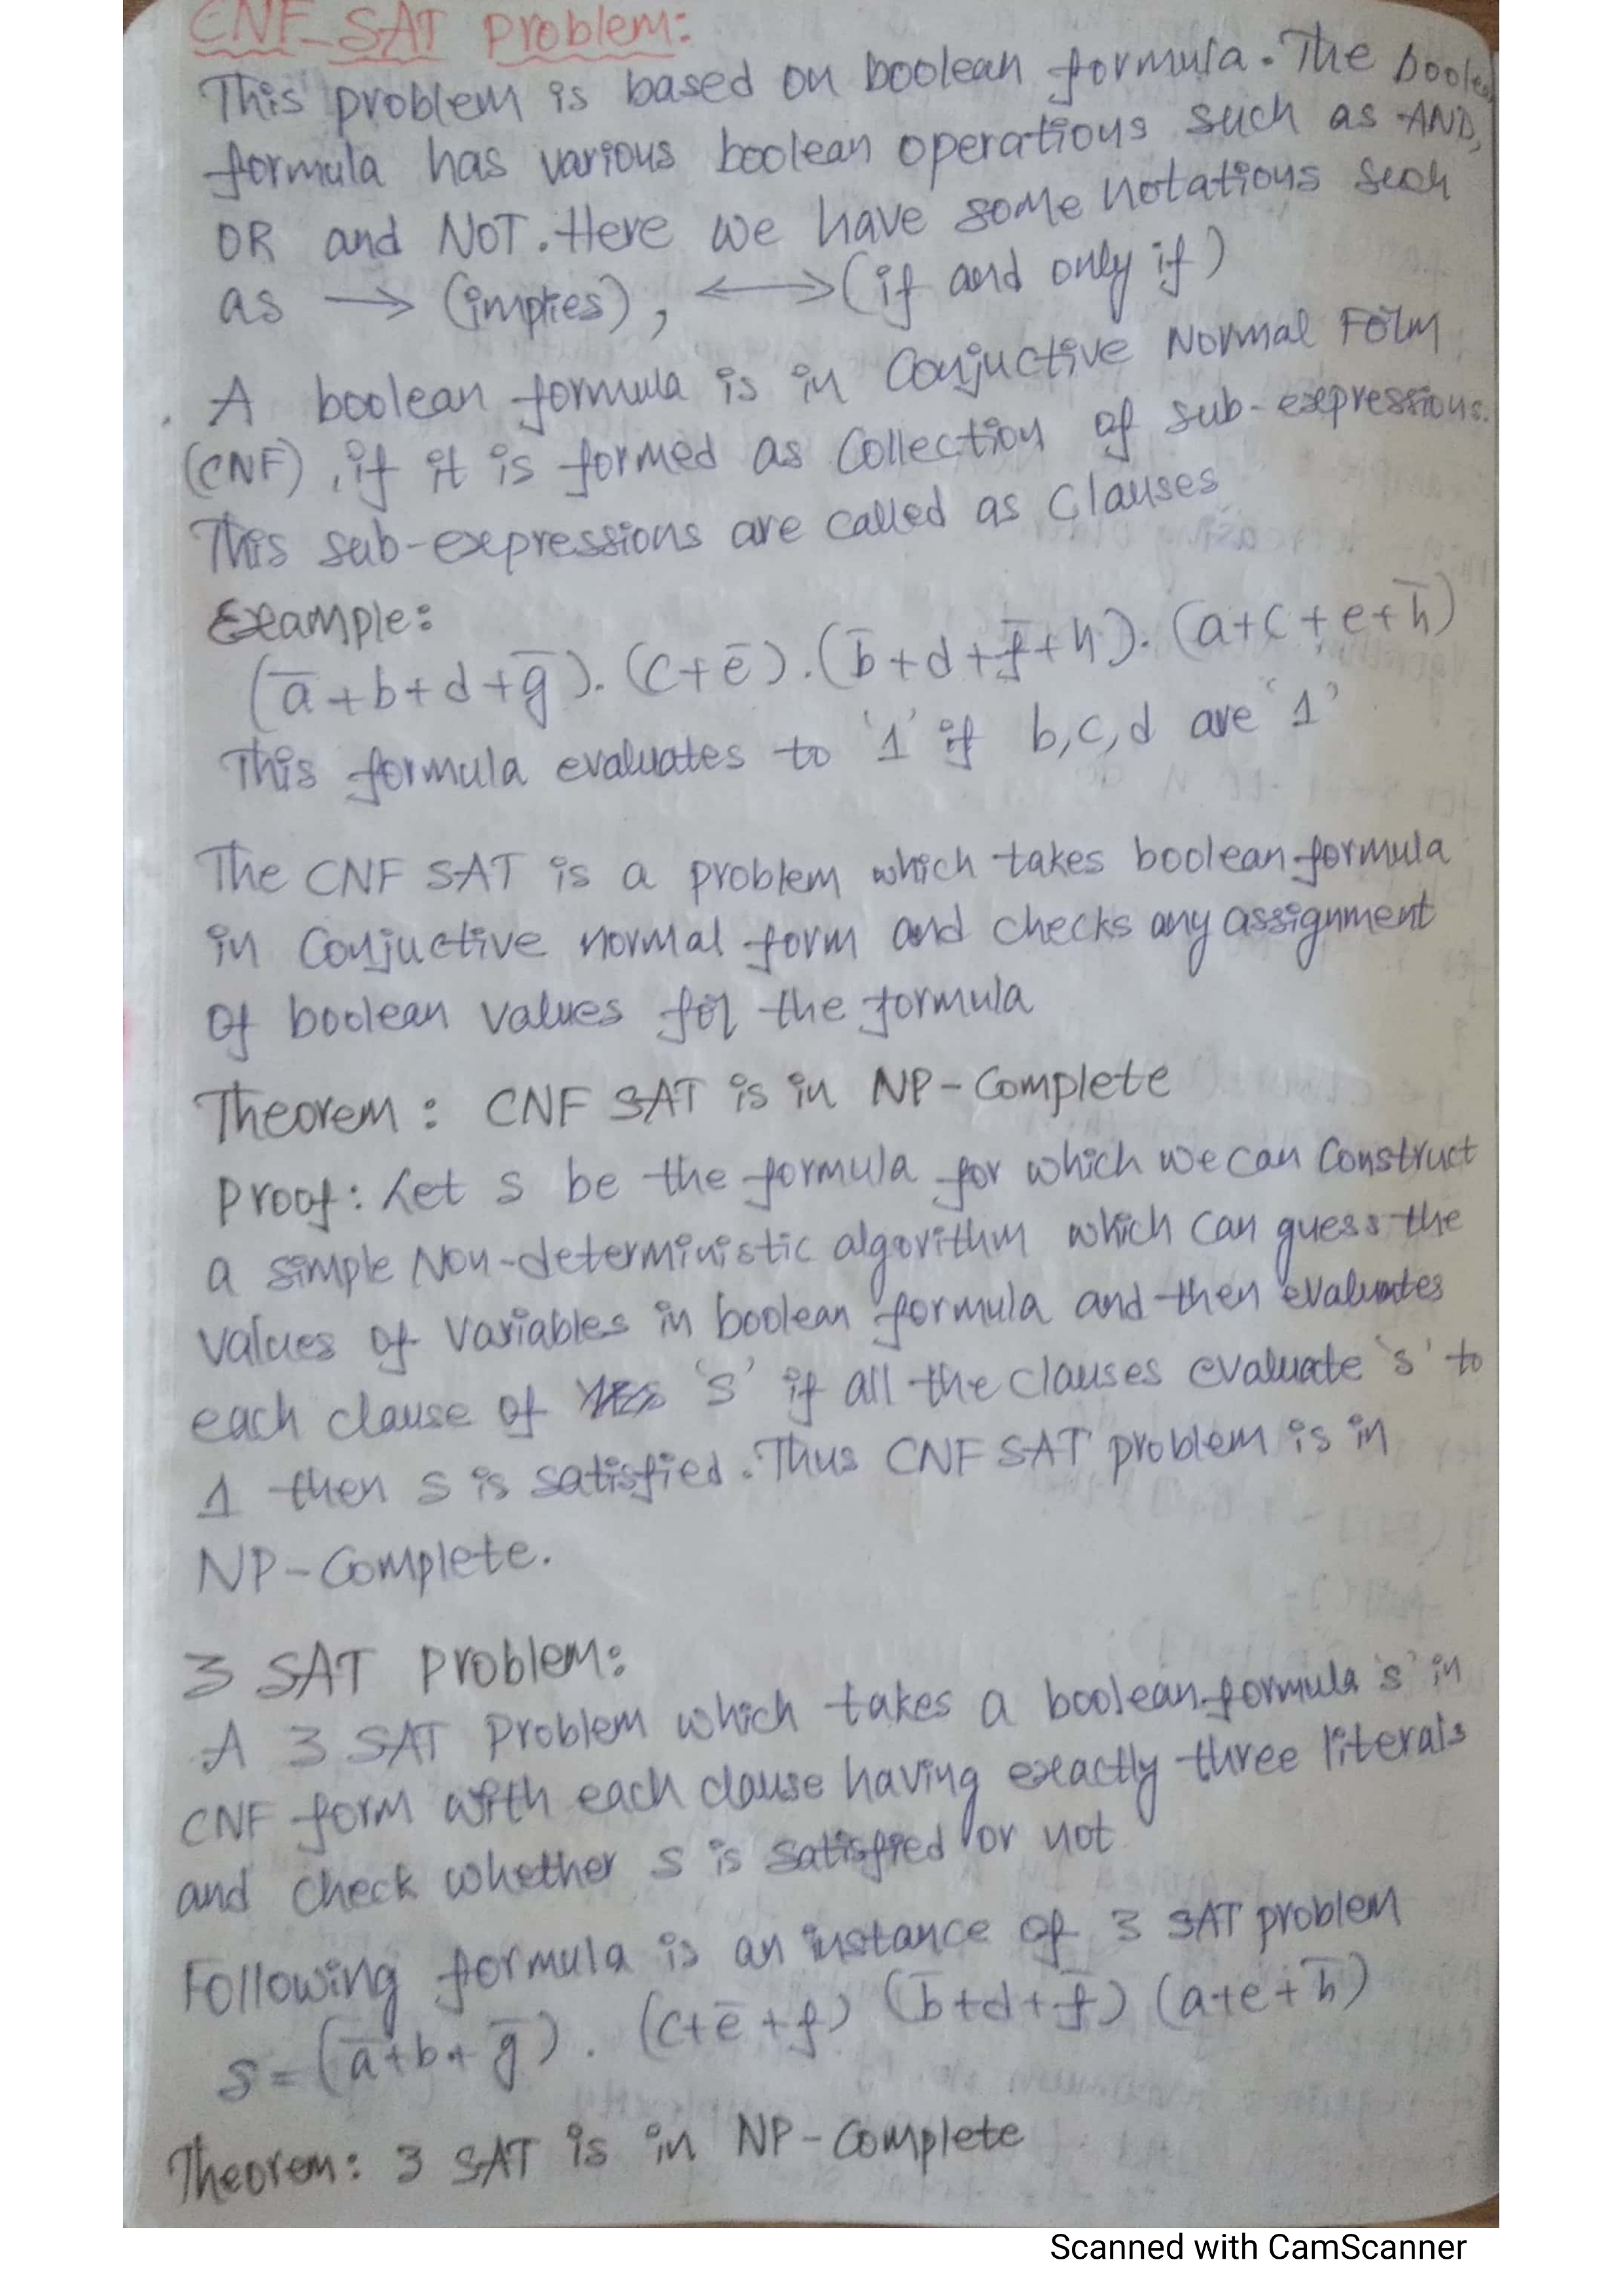 CNF-SAT Problem:
This problem is based on boolean formula. The boolean
formula has various boolean operations such as AND,
OR and NOT. Here we have some notations such
as → (implies), ⟷ (if and only if)
A boolean formula is in Conjuctive Normal Form
(CNF), if it is formed as Collection of sub-expressions.
This sub-expressions are called as Clauses
Example:
(a̅+b+d+g̅).(c+e̅).(b̅+d+f̅+h).(a+c+e+h̅)
This formula evaluates to '1' if b,c,d are '1'
The CNF SAT is a problem which takes boolean formula
in Conjuctive normal form and checks any assignment
of boolean values for the formula
Theorem: CNF SAT is in NP-Complete
Proof: Let S be the formula for which we can Construct
a simple Non-deterministic algorithm which can guess the
values of variables in boolean formula and then evaluates
each clause of 's' if all the clauses evaluate 's' to
1 then S is satisfied. Thus CNF SAT problem is in
NP-Complete.
3 SAT Problem:
A 3 SAT Problem which takes a boolean formula 's' in
CNF form with each clause having exactly three literals
and check whether S is satisfied or not
Following formula is an instance of 3 SAT problem
S=(a̅+b+g̅).(c+e̅+f) (b̅+d+f̅) (a+e+h̅)
Theorem: 3 SAT is in NP-Complete
Scanned with CamScanner